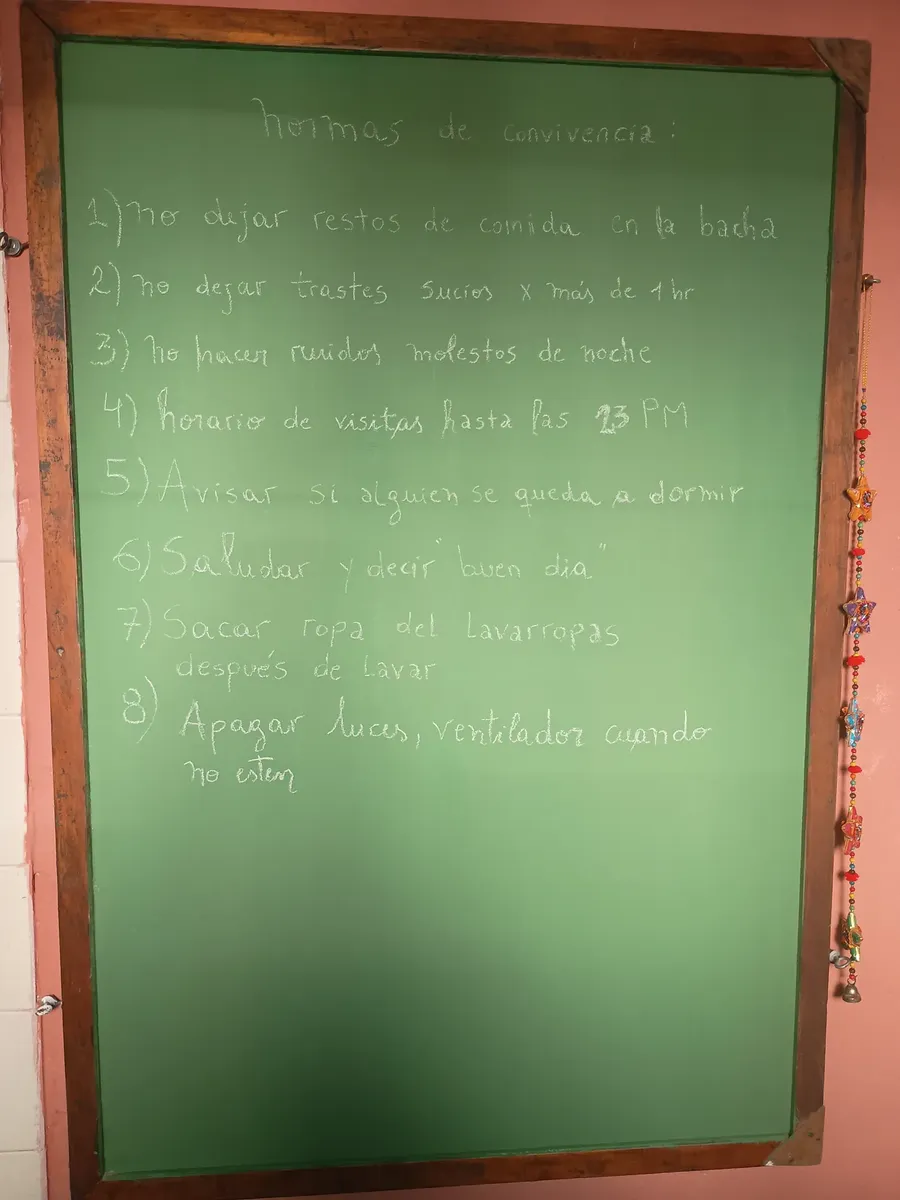 Normas de convivencia:
1) no dejar restos de comida en la bacha
2) no dejar trastes sucios x más de 1 hr
3) no hacer ruidos molestos de noche
4) horario de visitas hasta las 23 PM
5) Avisar si alguien se queda a dormir
6) Saludar y decir "buen dia"
7) Sacar ropa del Lavarropas
después de Lavar
8) Apagar luces, ventilador cuando
no esten